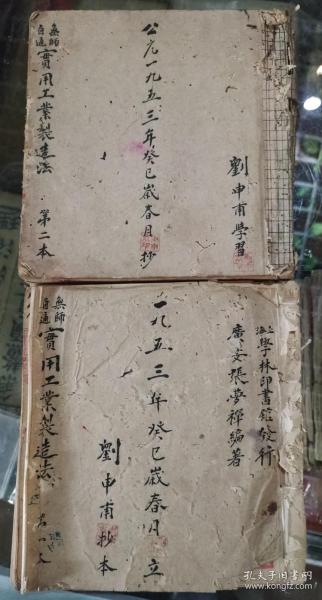 無師自通
實用工業製造法 第二本
公元一九五三年癸巳歲春月 抄
劉申甫學習
無師自通
實用工業製造法
一九五三年癸巳歲春月 立
劉申甫 抄本
上海學林印書館發行
廣安張夢禪編著
孔夫子旧书网